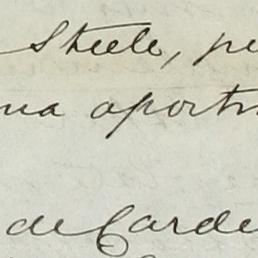 Steele, pe
na aportu
de Carde